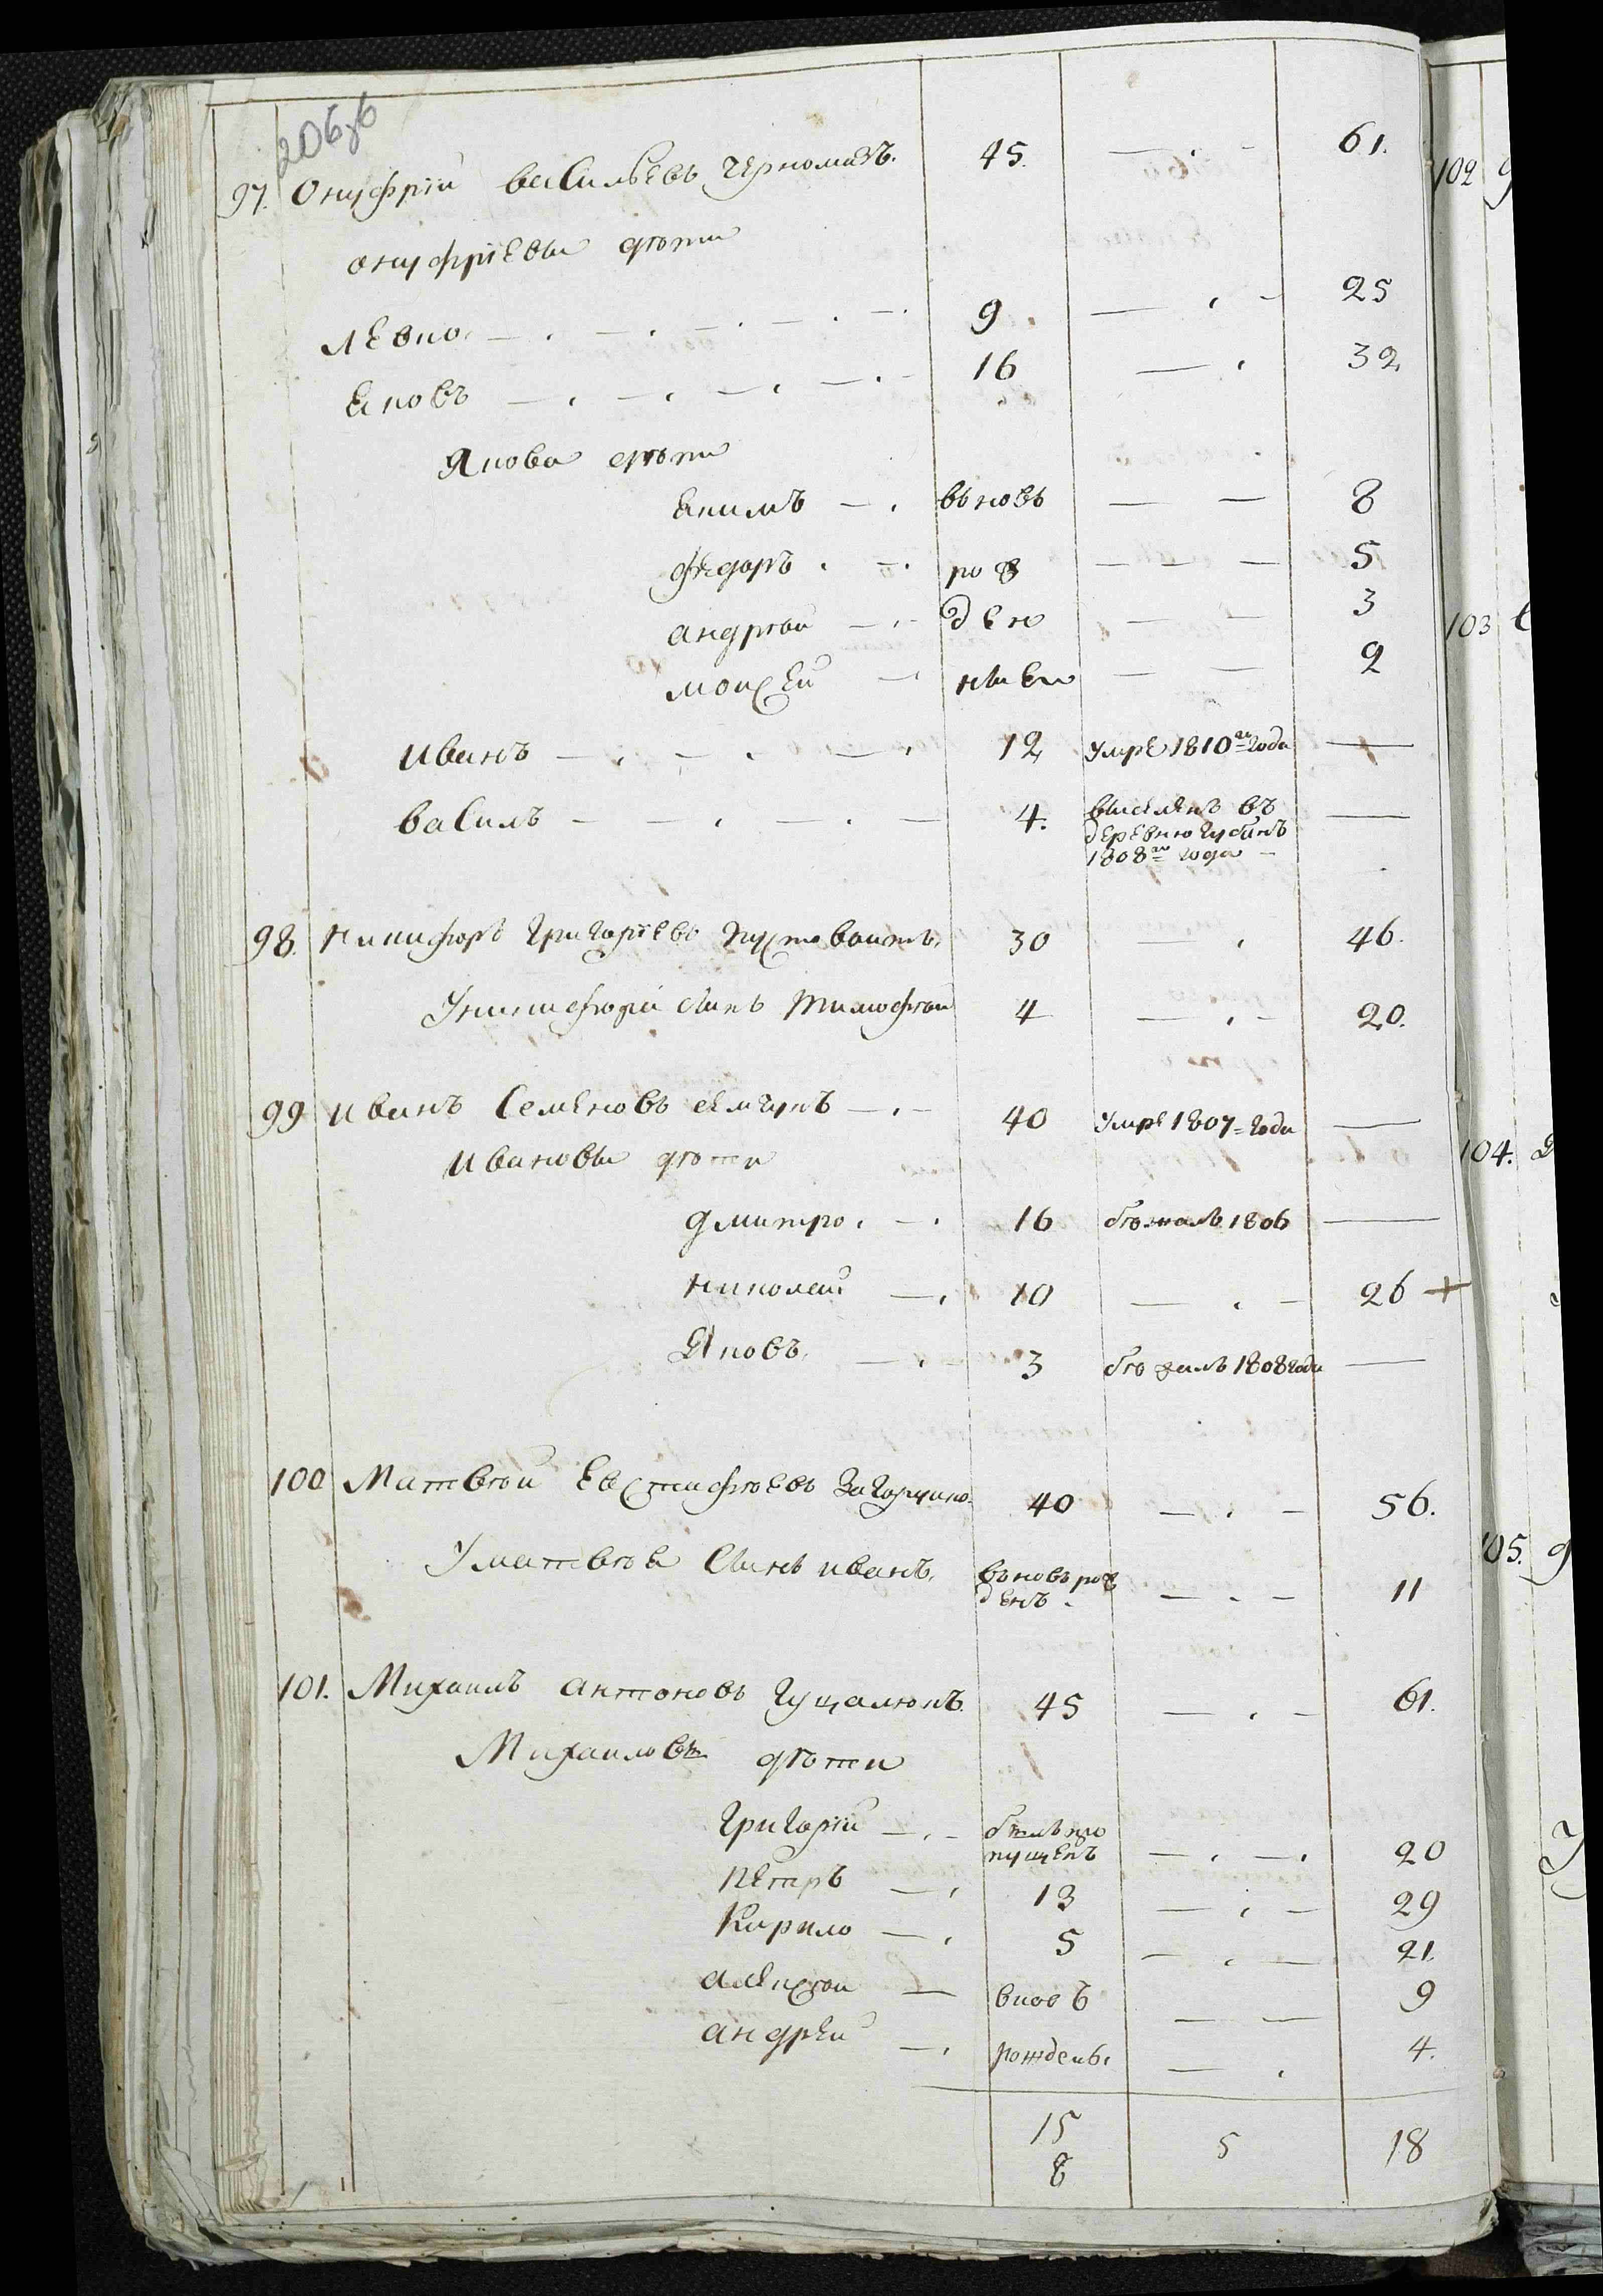 206зв
97. Онуфрій васильевъ черномазъ. 45. 61.
онуфріевы дѣти
левко 9 25
Яковъ 16 32
Якова дѣти
Якимъ вьновь 8
Федоръ рож 5
андрѣй ден 3
моисей ныеи 2
иванъ 12 умре 1810го года
василь 4. выселенъ въ
деревню
1808го года
98. никифоръ григоріевъ пустовоитъ. 30 46.
У никифора сынъ тимофѣй 4 20.
99 иванъ семеновъ 40 умре 1807 года
ивановы дѣти
дмитро. 16 бѣжалъ 1806
николай 10 26 +
Яковъ 3 бѣжалъ 1808 года
100 Матвѣй Евстифѣевъ 40 56.
У матвѣя сынъ иванъ. вьновь рож
денъ. 11
101. Михаилъ антоновъ 45 61.
Михаиловы дѣти
григорій былъ про
пущенъ 20
петръ 13 29
Кирило 5 21.
алексѣй вновь 9
андрей рождены. 4.
15 5 18
8
102
103
104.
105.